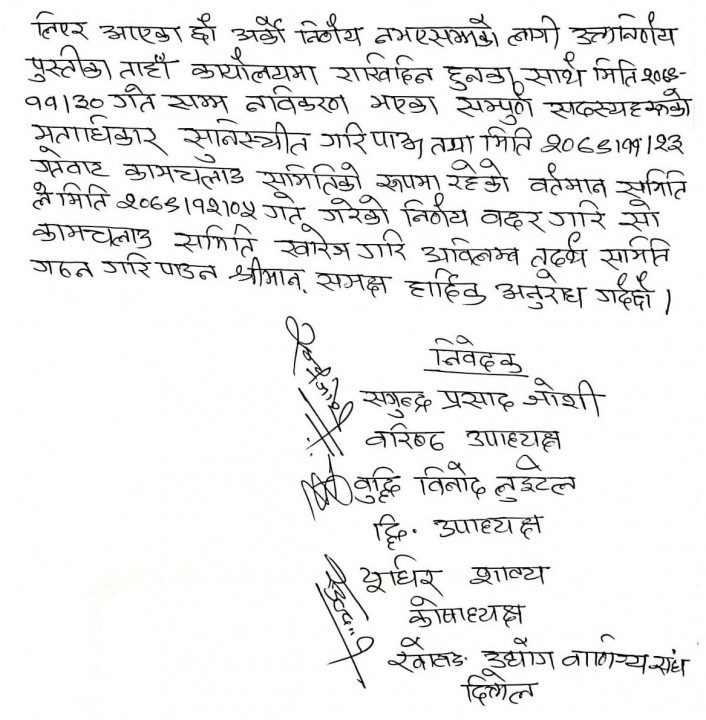 लिएर आएका छौ अर्को निर्णय नभएसम्मको लागी उक्तनिर्णय
पुस्तीका ताहाँ कार्यालयमा राखिदिन हुनका साथै मिति २०७८-
११।३० गते सम्म नविकरण भएका सम्पुर्ण सदस्यहरुको
मताधिकार सुनिस्चीत गरि पाउ तथा मिति २०७८।११।२३
गतेबाट कामचलाउ समितिको रूपमा रहेको वर्तमान समिति
ले मिति २०७८।१२।०५ गते गरेको निर्णय वदर गरि सो
कामचलाउ समिति खारेज गरि अविलम्ब तदर्थ समिति
गठन गरि पाउन श्रीमान् समक्ष हार्दिक अनुरोध गर्दछौ।
निवेदक
प्रसाद जोशी
वरिष्ठ उपाध्यक्ष
वुद्धि विनोद लुइटेल
द्वि. उपाध्यक्ष
शाक्य
कोषाध्यक्ष
खोटाङ उद्योग वाणिज्य संघ
दिक्तेल